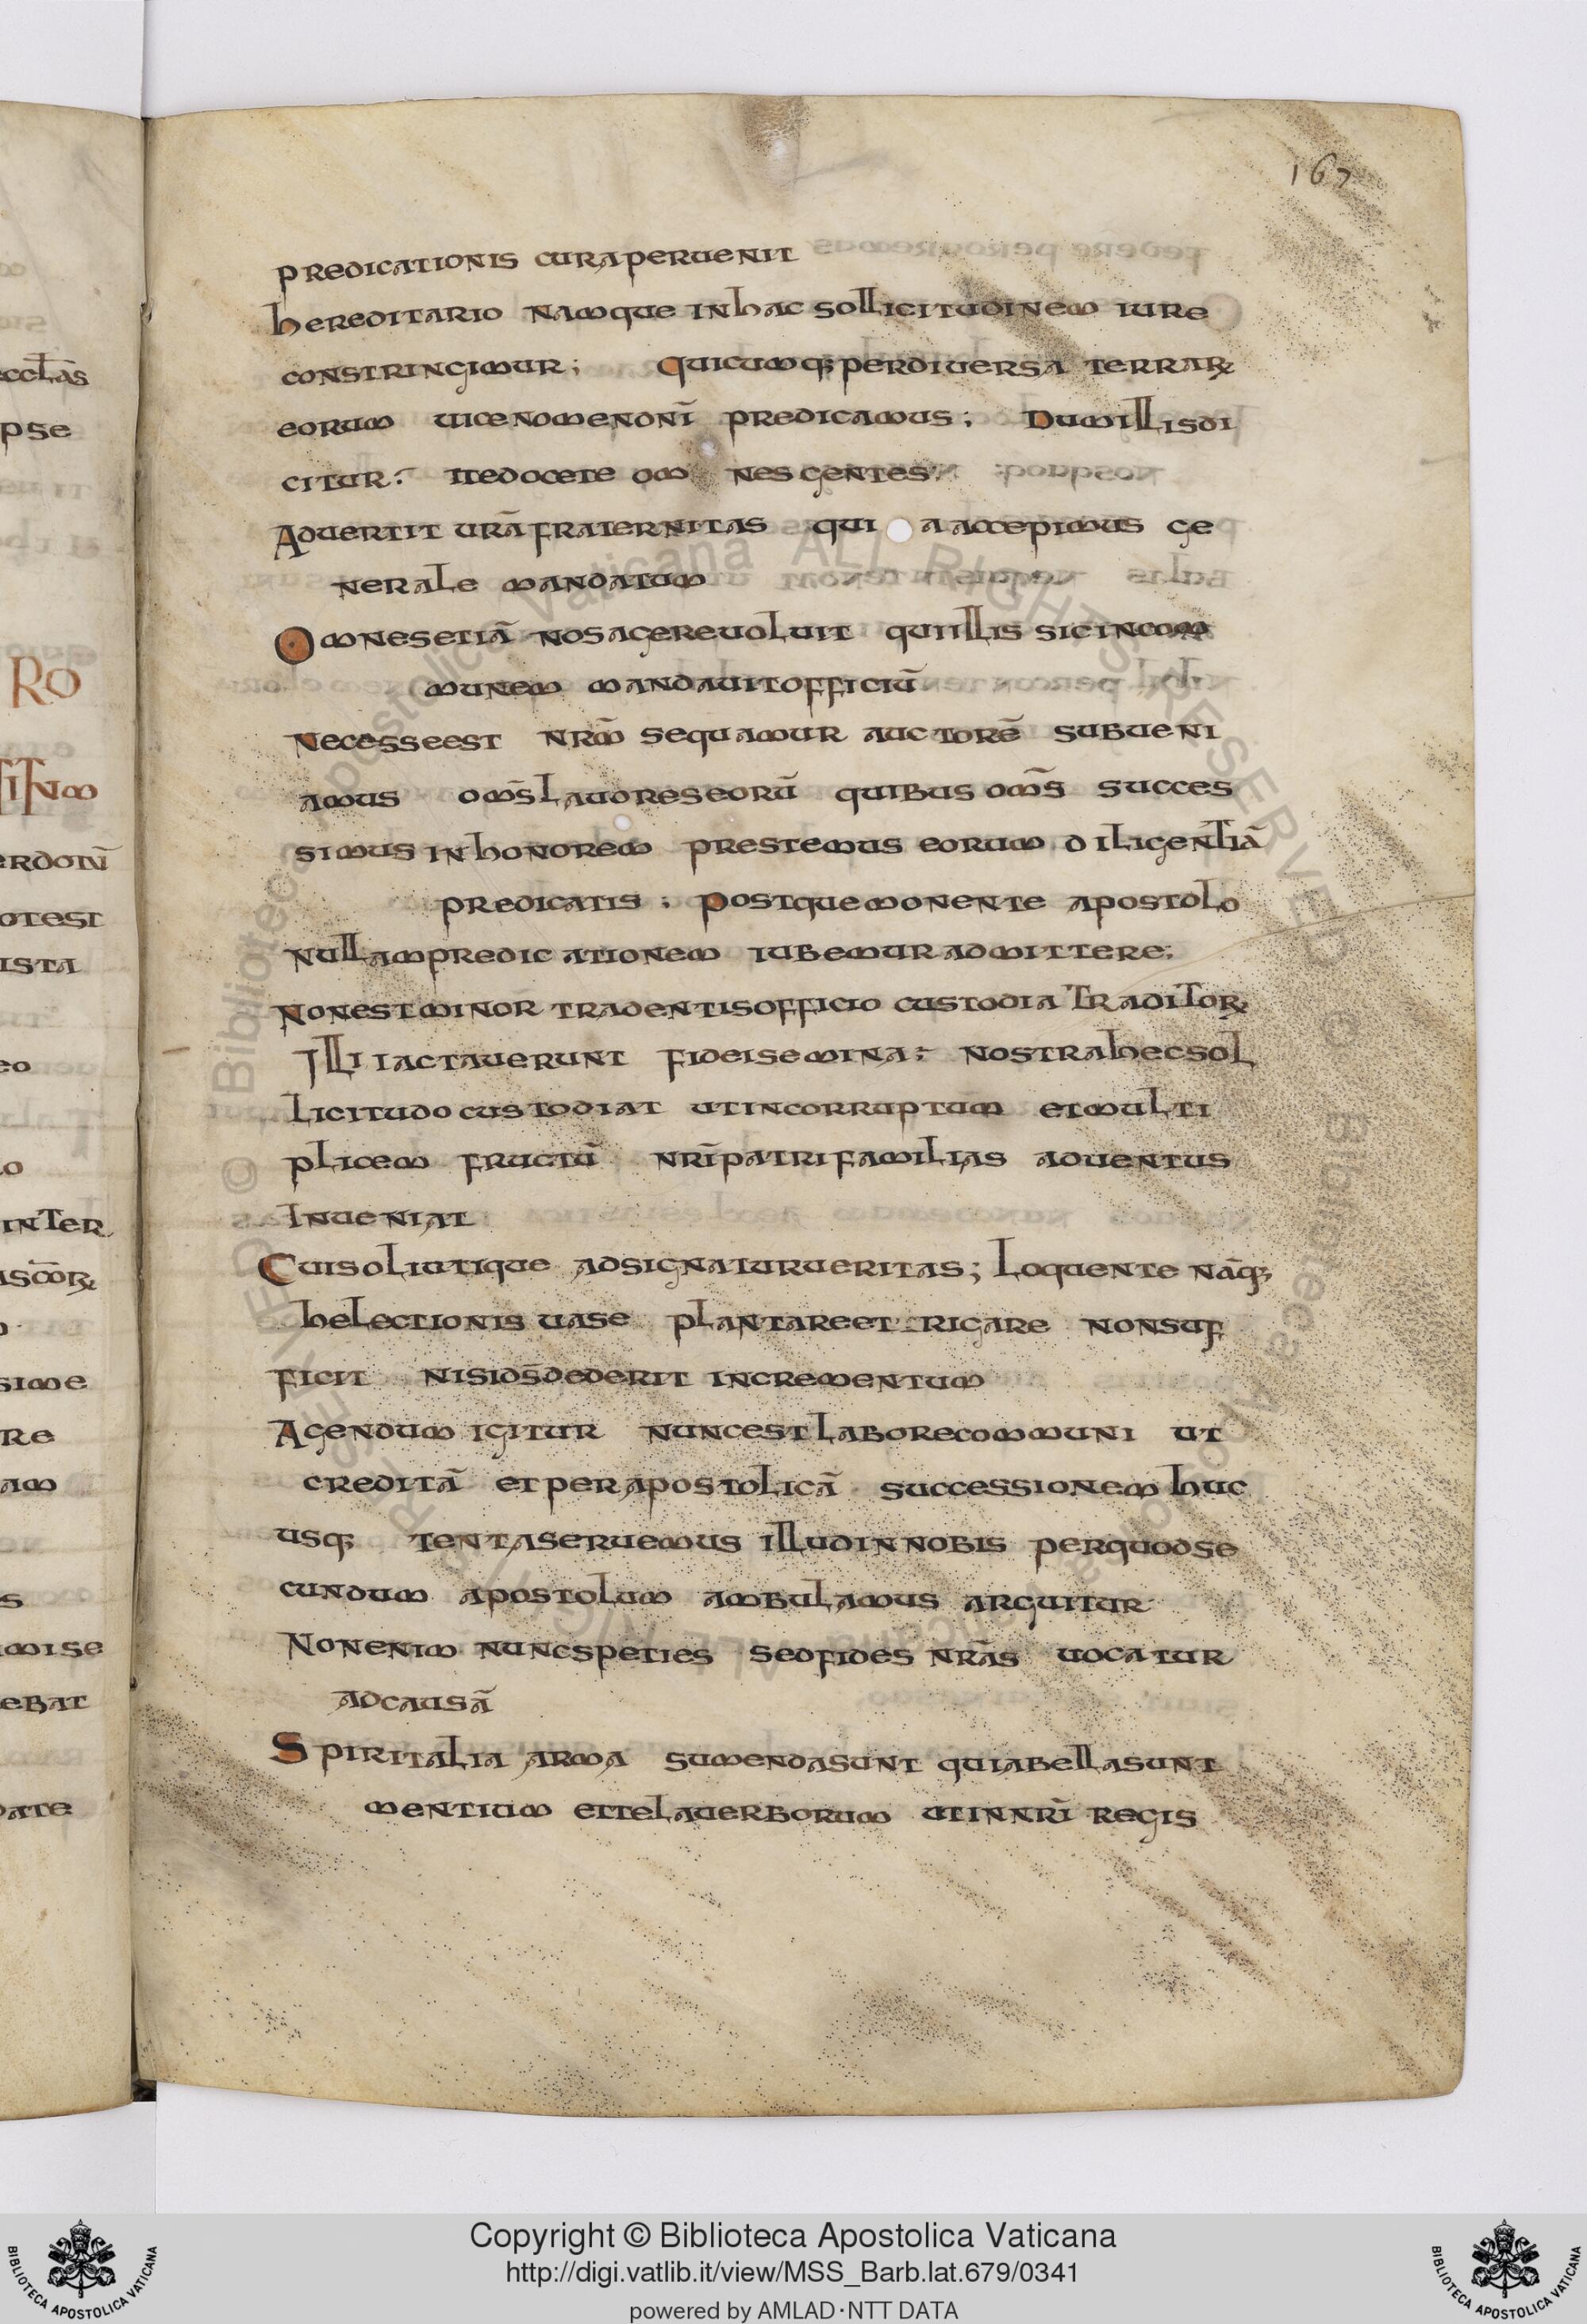 167
predicationis curaperuenit
hereditario namque inhac sollicitudinem iure
constringimur; quicumq; perdiuersa terrarꝝ
eorum uicenomenonī predicamus; Dumillisdi
citur: itedocete om nesgentes;
Aduertit urā fraternitas qui a accepimus ge
nerale mandatum
Omnesetiā nosagereuoluit quiillis sicincom
munem mandauitofficiū
Necesseest nrm̄ sequamur auctorē subueni
amus om̄s lauoreseorū quibus om̄s succes
simus inhonorem prestemus eorum diligentiā
predicatis; postquemonente apostolo
nullampredicationem iubemur admittere;
nonestminor tradentisofficio custodia traditorꝝ
Illi iactauerunt fideisemina; nostrahecsol
licitudo custodiat utincorruptum etmulti
plicem fructū nrīpatrifamilias aduentus
inueniat
Cuisoliutique adsignaturueritas; Loquente nāq;
helectionis uase plantareet rigare nonsuf
ficit nisid̄sdederit incrementum
Agendum igitur nuncest laborecommuni ut
creditā etperapostolicā successionem huc
usq; tentaseruemus illudinnobis perquodse
cundum apostolum ambulamus arguitur
Nonenim nuncspeties sedfides nrās uocatur
adcausā
Spiritalia arma sumendasunt quiabellasunt
mentium ettelauerborum utinnrī regis
eccl̄as
pse
RO
erdoīn
otest
ista
eo
o
inter
iscōrꝝ
sime
re
am
s
mise
ebat
date
© Biblioteca Apostolica Vaticana ALL RIGHTS RESERVED
Copyright © Biblioteca Apostolica Vaticana
http://digi.vatlib.it/view/MSS_Barb.lat.679/0341
powered by AMLAD·NTT DATA
BIBLIOTECA APOSTOLICA VATICANA
BIBLIOTECA APOSTOLICA VATICANA